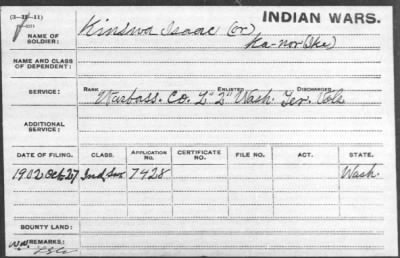 (3—-11) INDIAN WARS.
NAME OF SOLDIER: Kinswa Isaac (or)
Ka-nor (Ike)
NAME AND CLASS OF DEPENDENT:
RANK ENLISTED DISCHARGED
SERVICE: Warbass. Co. L" 2" Wash. Ter. Vols
ADDITIONAL SERVICE:
DATE OF FILING. CLASS. APPLICATION NO. CERTIFICATE NO. FILE NO. ACT. STATE.
1902 Oct 27 Ind Sur 7428 Wash.
BOUNTY LAND:
REMARKS: